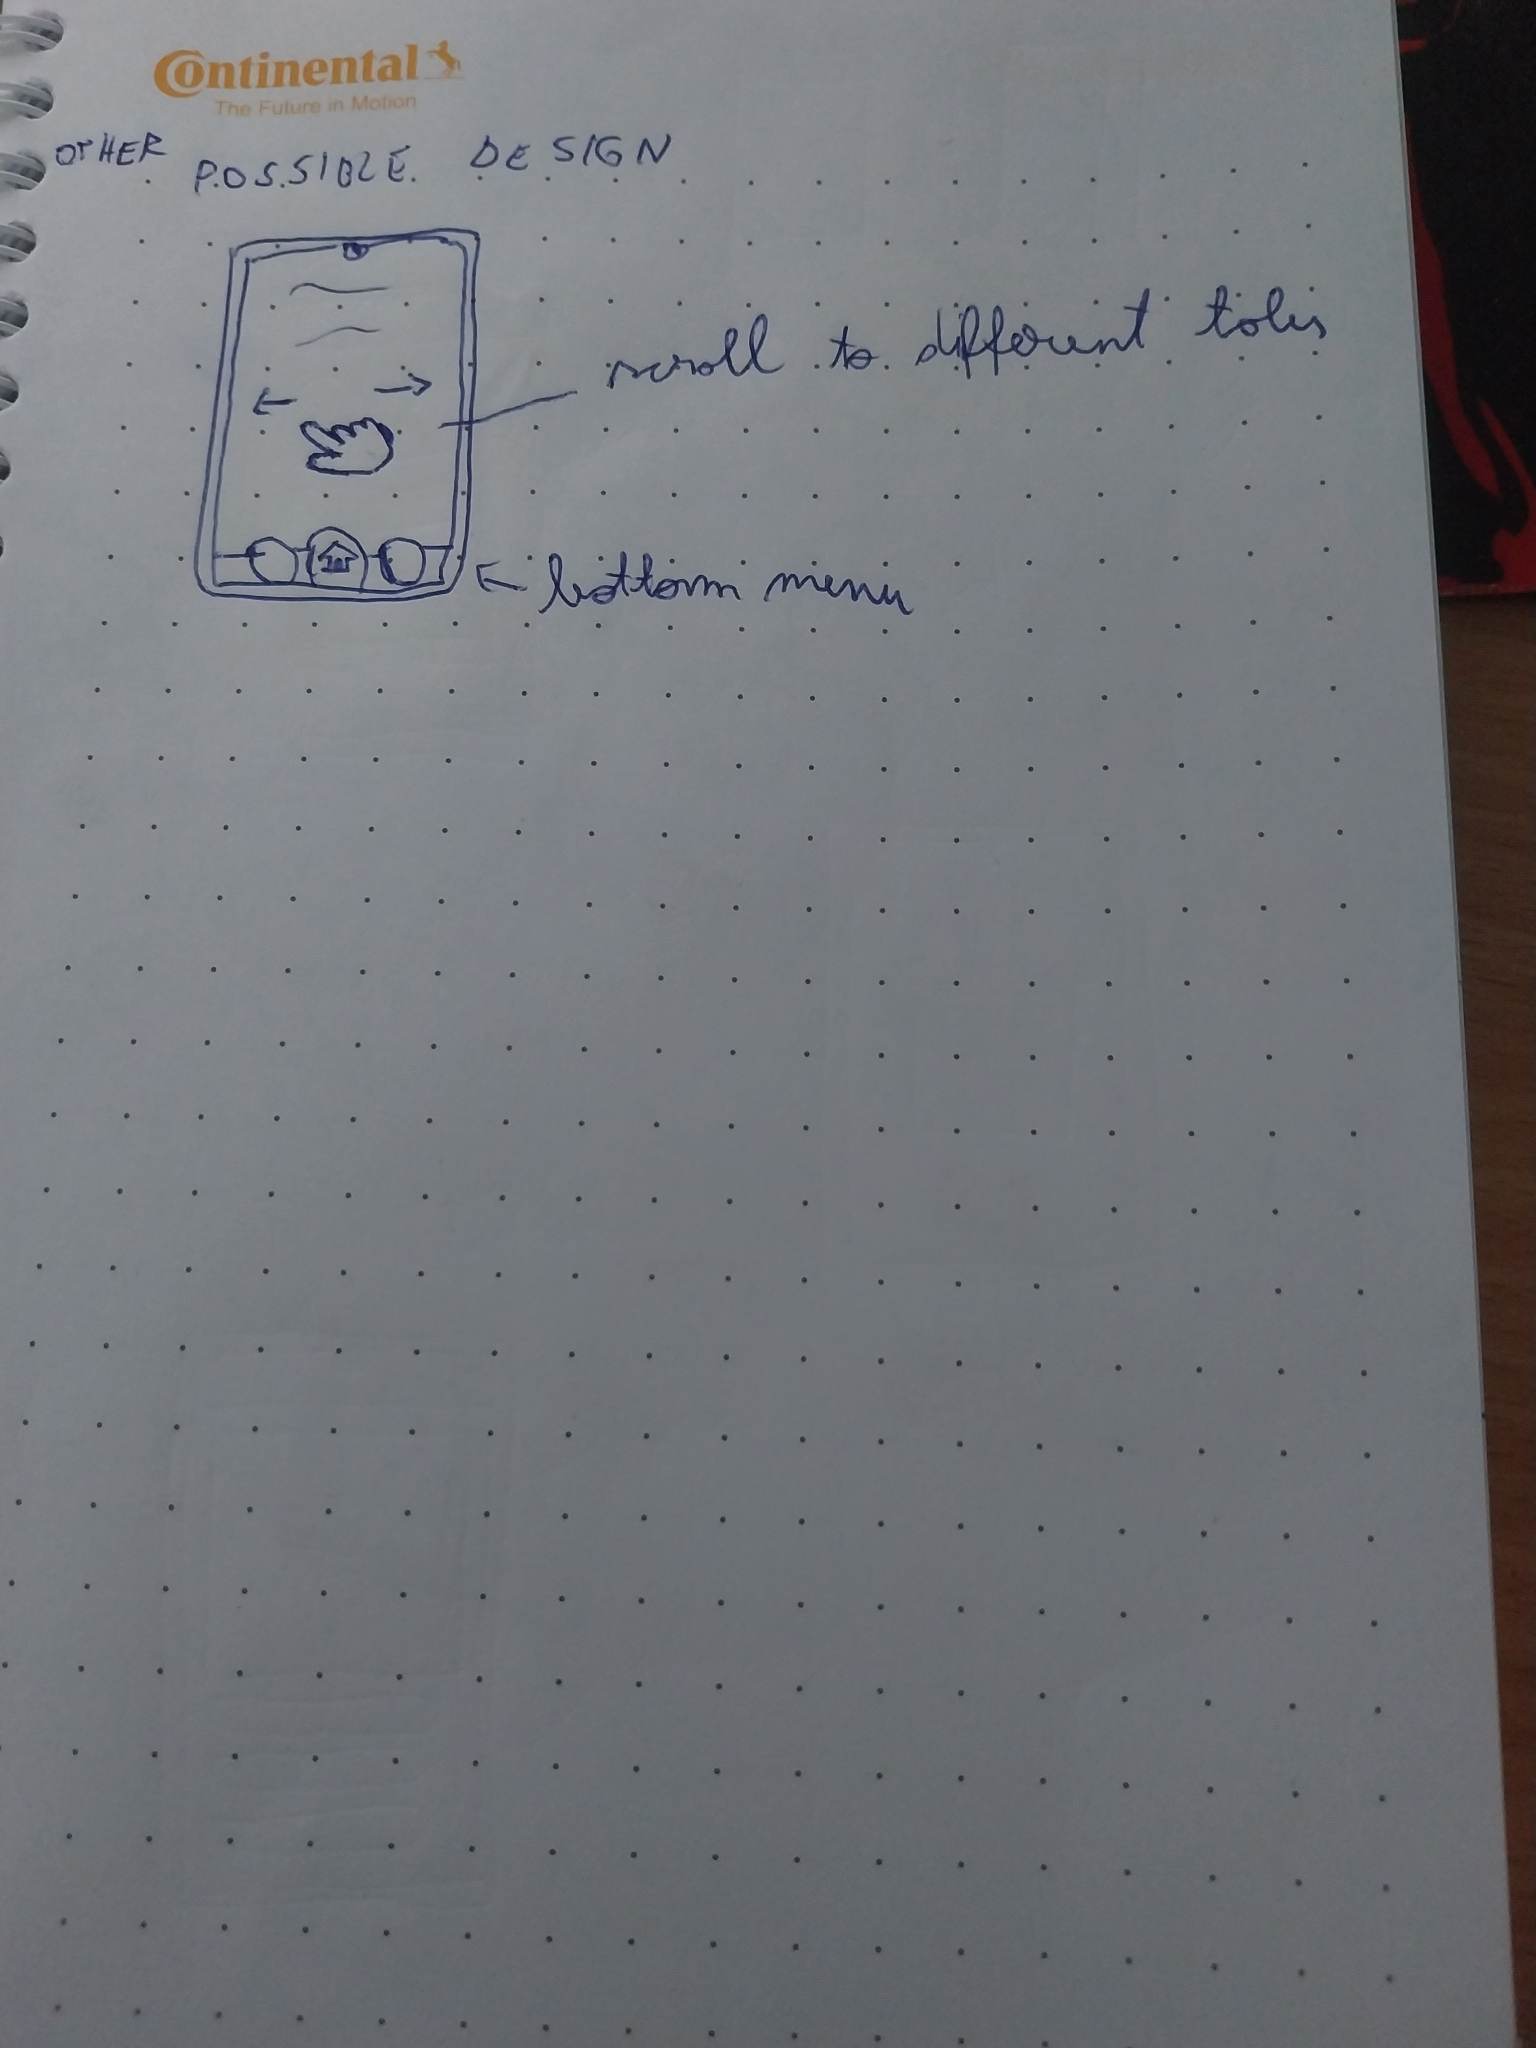 Continental
The Future in Motion
OTHER POSSIBLE DESIGN
scroll to different tabs
bottom menu